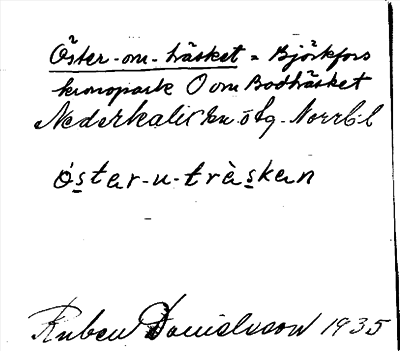 Öster-om-träsket = Björkfors
kronopark O om Bodträsket
Nederkalix kn ö tg. Norrb. l
óstar-u-trὲskan
Ruben Danielsson 1935